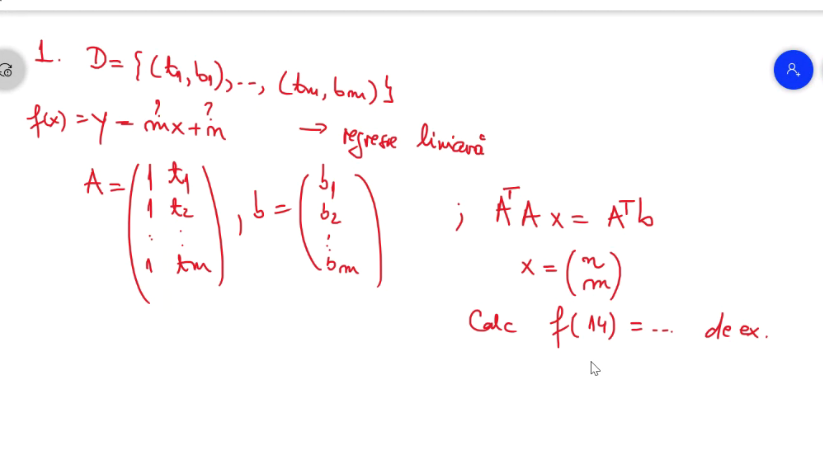 1. D = {(t₁, b₁), ..., (tₘ, bₘ)}
? ?
f(x) = y = mx + n → regresie liniară
A = (1 t₁
1 t₂
⋮ ⋮
1 tₘ), b = (b₁
b₂
⋮
bₘ)
; AᵀA x = Aᵀb
x = (n
m)
Calc f(14) = ... de ex.